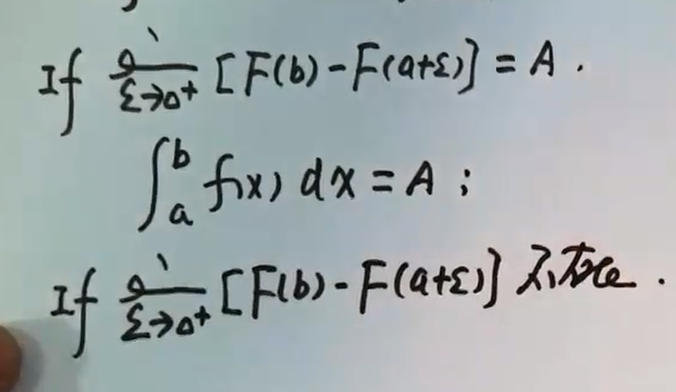 If lim ε→0⁺ [F(b)-F(a+ε)] = A.
∫ₐᵇ f(x) dx = A;
If lim ε→0⁺ [F(b)-F(a+ε)] 不存在.